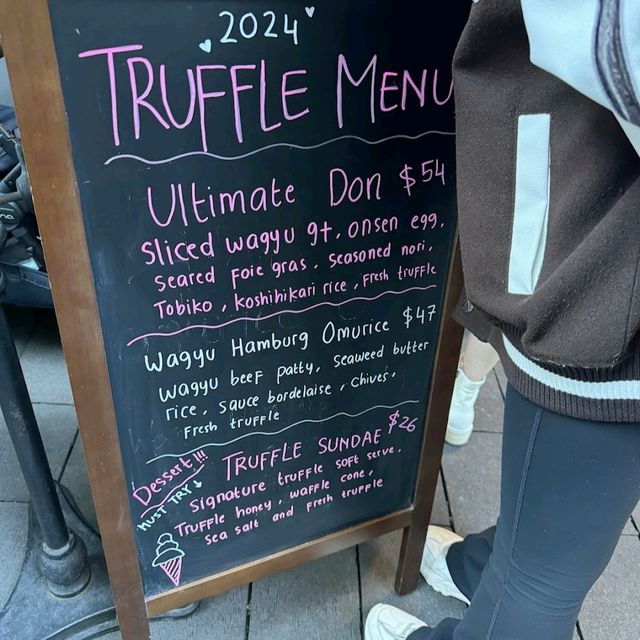 2024
TRUFFLE MENU
Ultimate Don $54
Sliced wagyu 9+, onsen egg,
seared foie gras, seasoned nori,
Tobiko, koshihikari rice, Fresh truffle
Wagyu Hamburg Omurice $47
wagyu beef patty, seaweed butter
rice, sauce bordelaise, chives,
Fresh truffle
Dessert!!!
MUST TRY↓
TRUFFLE SUNDAE $26
Signature truffle soft serve,
Truffle honey, waffle cone,
sea salt and fresh truffle